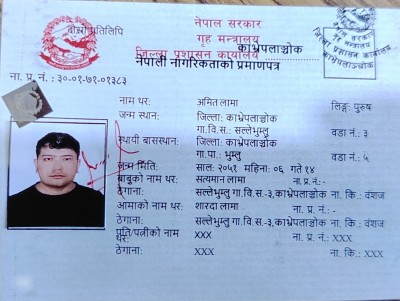 दोस्रो प्रतिलिपि
नेपाल सरकार
गृह मन्त्रालय
जिल्ला प्रशासन कार्यालय काभ्रेपलाञ्चोक
नेपाली नागरिकताको प्रमाणपत्र
ना. प्र. नं. : ३०-०१-७१-०१३८३
नाम थर: अमित लामा लिङ्ग: पुरुष
जन्म स्थान: जिल्ला: काभ्रेपलाञ्चोक
गा.वि.स.: सल्लेभुम्लु वडा नं.: ३
स्थायी बासस्थान: जिल्ला: काभ्रेपलाञ्चोक
गा.पा.: भुम्लु वडा नं.: ५
जन्म मिति: साल: २०५१ महिना: ०६ गते १४
बाबुको नाम थर: सत्यमान लामा ना. प्र. नं.-
ठेगाना: सल्लेभुम्लु गा.वि.स.-३,काभ्रेपलाञ्चोक ना. कि.: वंशज
आमाको नाम थर: शारदा लामा ना. प्र. नं.: -
ठेगाना: सल्लेभुम्लु गा.वि.स.-३,काभ्रेपलाञ्चोक ना. कि.: वंशज
पति/पत्नीको नाम थर: XXX ना. प्र. नं.: XXX
ठेगाना: XXX ना. कि.: XXX